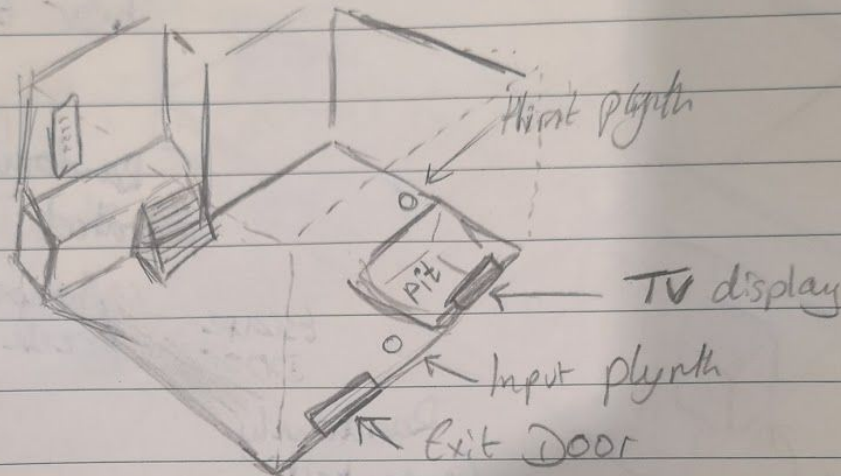 Hint plynth
TV display
Pit
Input plynth
Exit Door